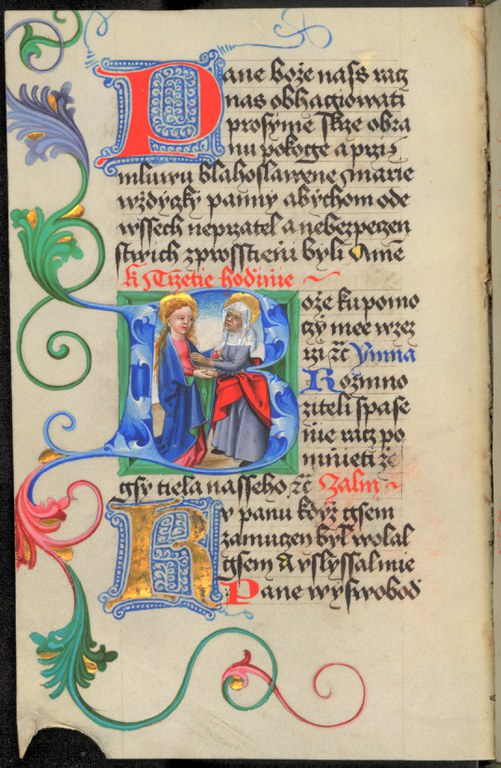 Pane boże nass racz
nas obhagiowati
prosyme Skrze obra
nu pokoge a przi
mluwu blahoslawene marie
wżdyczky panny abychom ode
wssech neprzatel a nebezpeczen
stwich zprosstieni byli Amē
k Trzetie hodinie
Boże ku pomo
czy mee wzez
rzi ꝛc Ymna
Rozmno
ziteli spase
nie racz po
mnieti że
gsy tiela nasseho ꝛc Zalm
K panu kdyż gsem
zamuczen byl wolal
gsem A vslyssal mie
Pane wyswobod